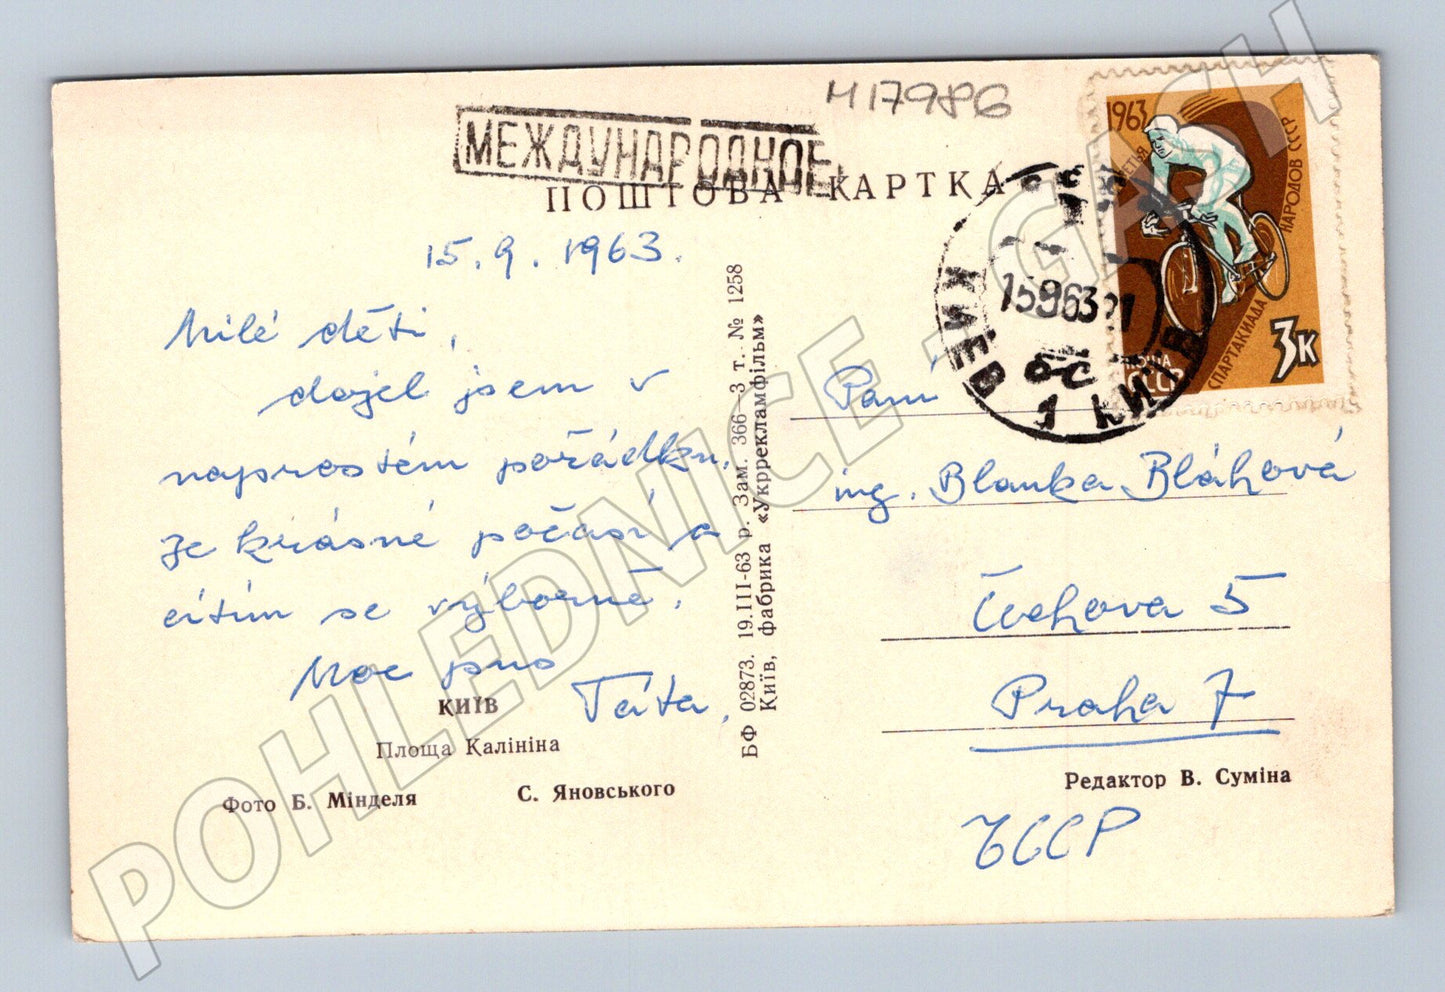 М17986
МЕЖДУНАРОДНОЕ
ПОШТОВА КАРТКА
15.9.1963.
Milé děti,
dojel jsem v
naprostém pořádku.
Je krásné počasí a
cítím se výborně.
Moc pus
Táta.
КИЇВ
Площа Калініна
Фото Б. Мінделя С. Яновського
БФ 02873. 19.III-63 р. Зам. 366—3 т. № 1258
Київ, фабрика «Укррекламфільм»
1963
НАРОДОВ СССР
СПАРТАКИАДА
3к
ПОЧТА
СССР
КИЕВ
15963 21
КИЇВ
Paní
ing. Blanka Bláhová
Čechova 5
Praha 7
Редактор В. Суміна
ЧССР
POHLEDNICE - CASH